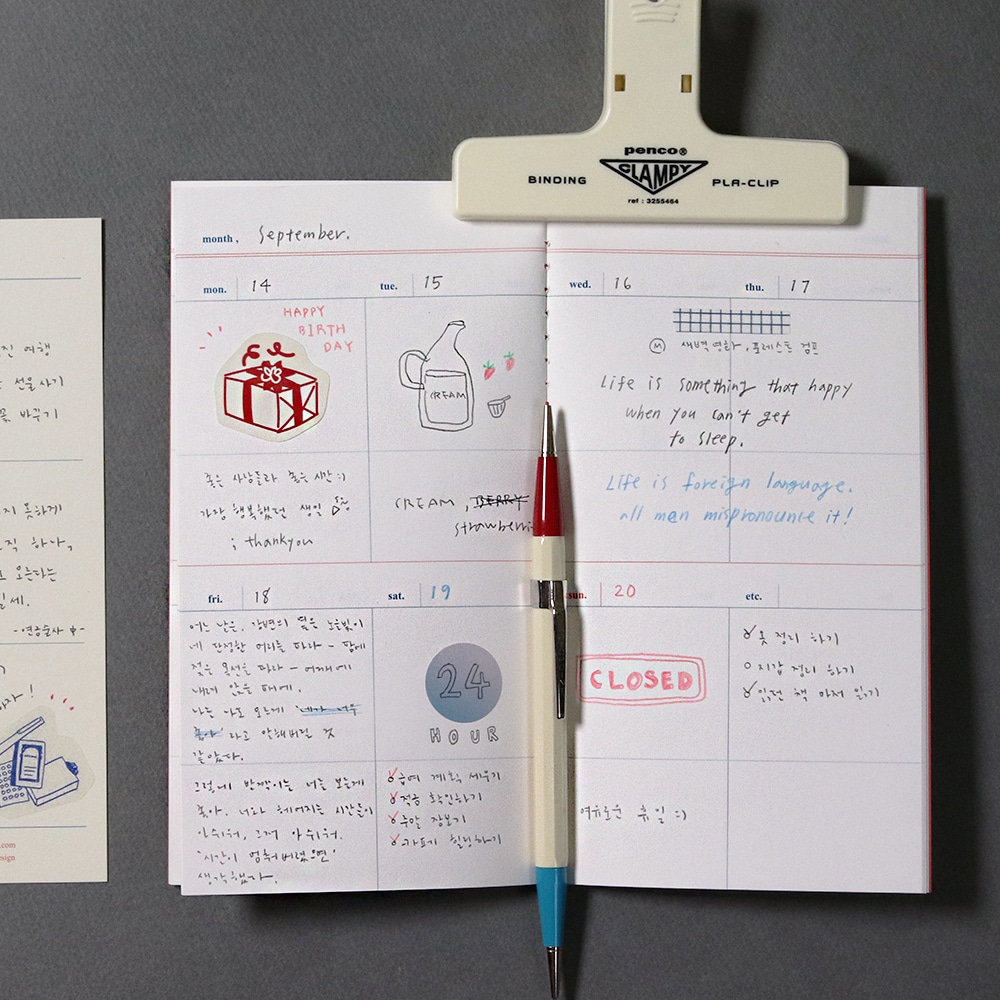 penco®
CLAMPY
BINDING
PLA-CLIP
ref : 3255464
month, September.
mon. 14
tue. 15
wed. 16
thu. 17
HAPPY
BIRTH
DAY
CREAM
좋은 사람들과 좋은 시간 :)
가장 행복했던 생일
; thankyou
CREAM , BERRY
strawberri
M 새벽 영화, 포레스트 검프
Life is something that happy
when you can't get
to sleep.
Life is foreign language.
all men mispronounce it!
fri. 18
sat. 19
sun. 20
etc.
어느 날은, 강변의 옅은 노을빛이
네 단정한 머리를 따라 -
젖은 목선을 따라 - 어깨에
내려 앉은 때에.
나는 나도 모르게 '네가 너무
좋아' 라고 말해버릴 것
같았다.
그렇게 반짝이는 너를 보는게
좋아. 너와 헤어지는 시간들이
아쉬워, 그저 아쉬워.
"시간이 멈춰버렸으면"
생각했다.
24
HOUR
급여 계획 세우기
적금 확인하기
주말 장보기
카페가 힐링하기
CLOSED
여유로운 휴일 :)
옷 정리 하기
지갑 정리 하기
읽던 책 마저 읽기
진 여행
선물사기
꽃 바꾸기
지 못하게
직 하나,
오른다는
일세.
-연금술사 中-
자 !
.com
esign